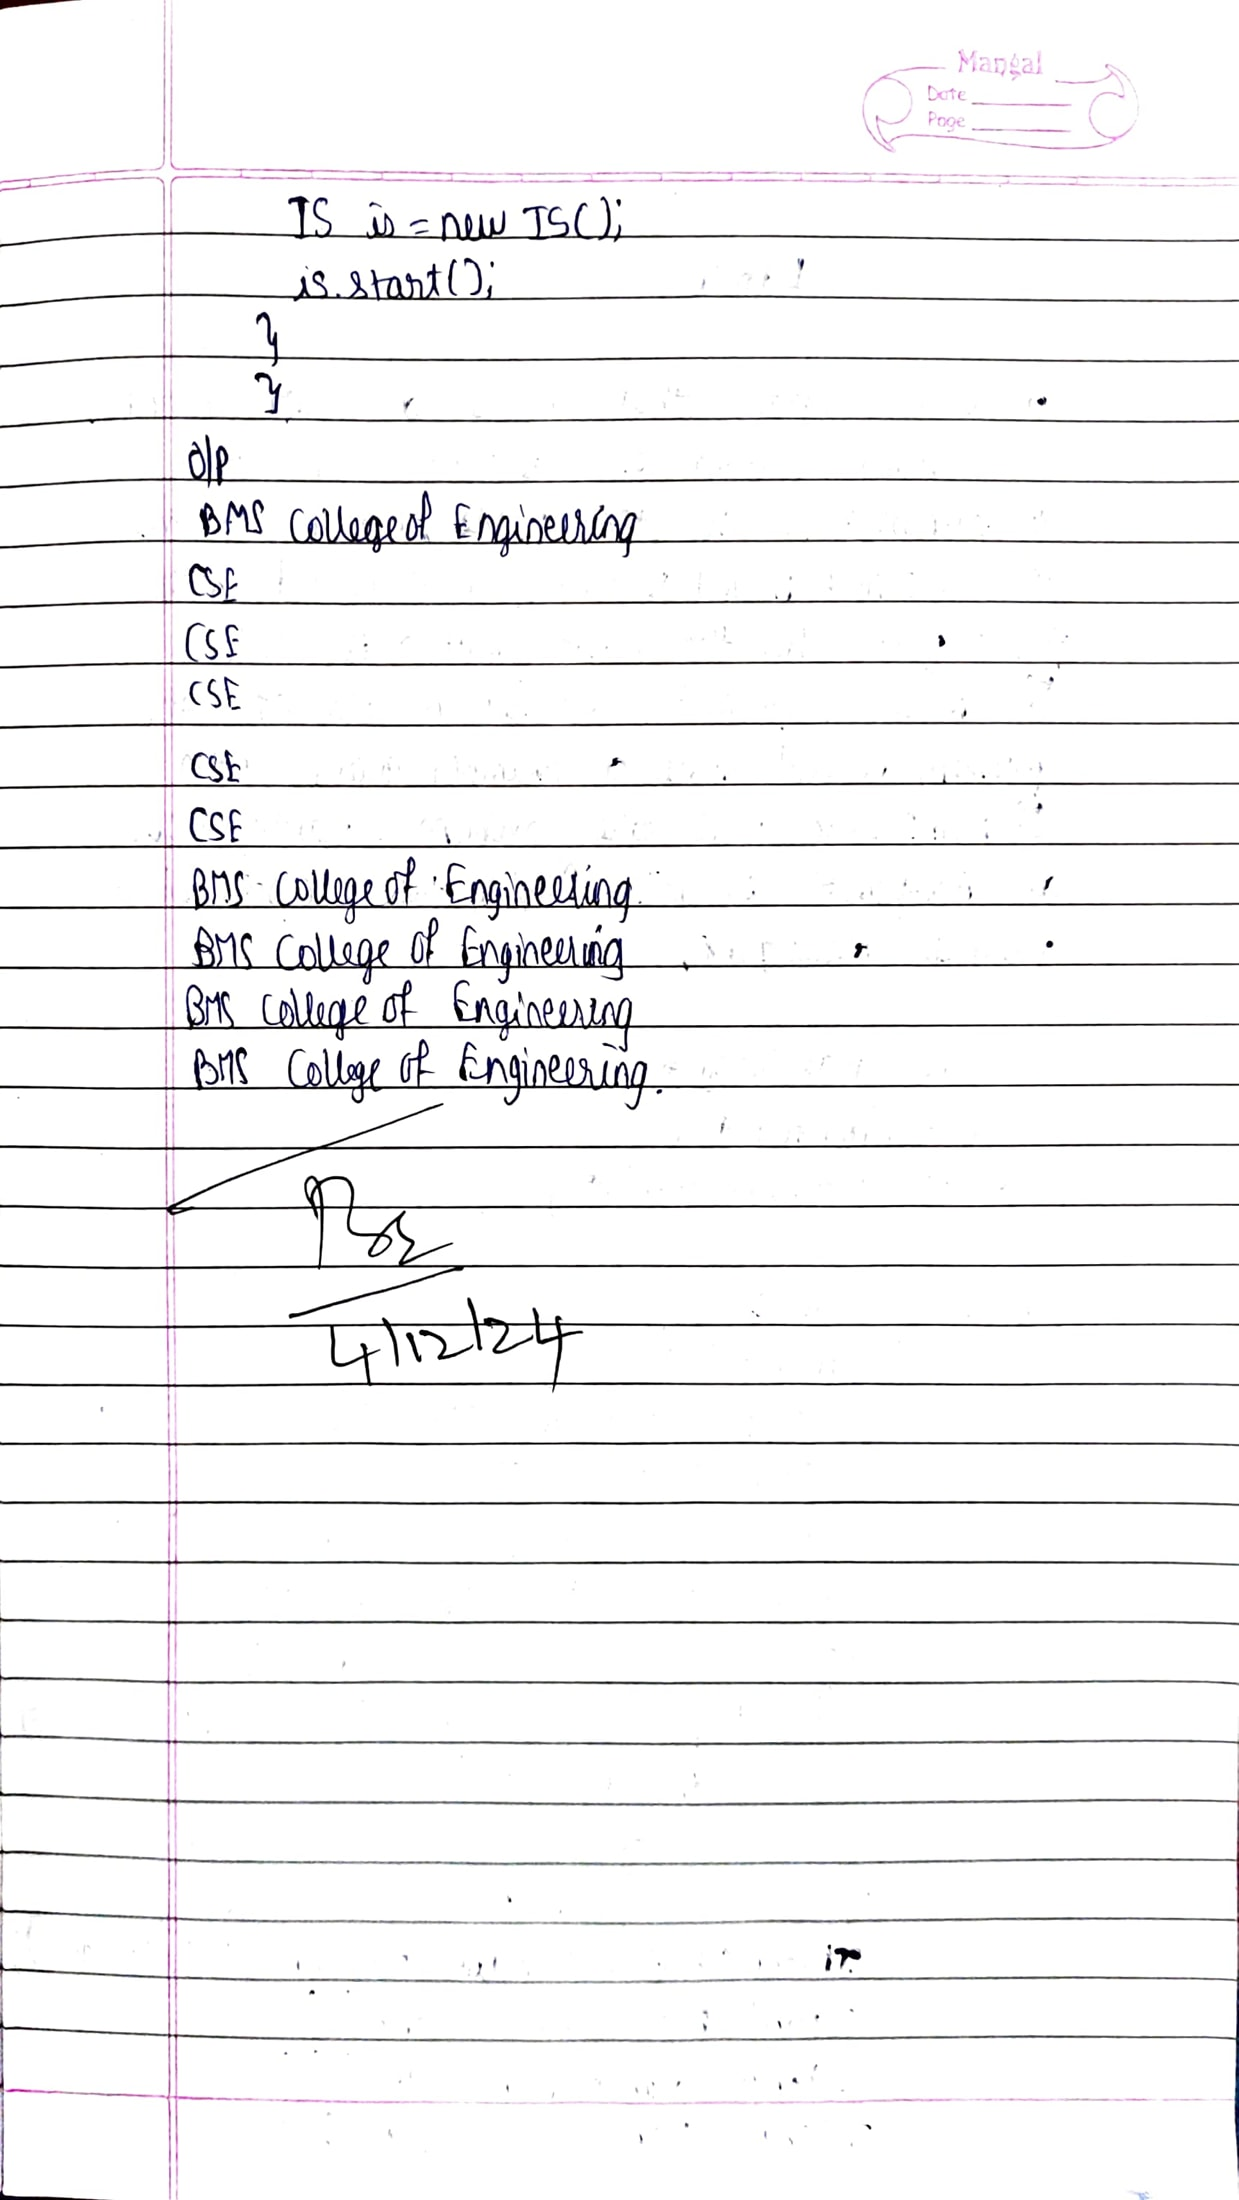 Mangal
Date
Page
IS is = new IS();
is.start();
}
}
O/P
BMS College of Engineering
CSE
CSE
CSE
CSE
CSE
BMS College of Engineering
BMS College of Engineering
BMS College of Engineering
BMS College of Engineering.
4/12/24